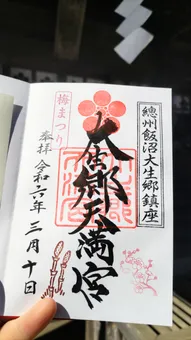 總州飯沼大生郷鎮座
大生郷天満宮
梅まつり
奉拝 令和六年三月十日